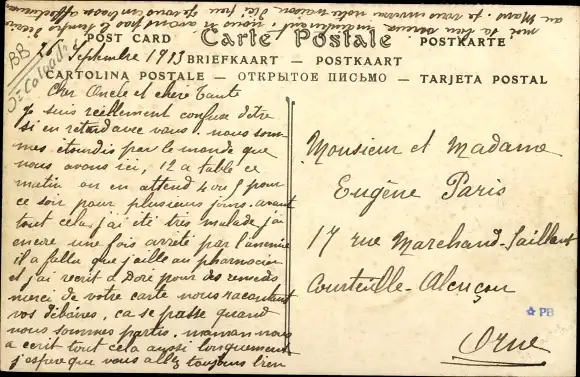 POST CARD Carte Postale POSTKARTE
BRIEFKAART — POSTKAART
CARTOLINA POSTALE — ОТКРЫТОЕ ПИСЬМО — TARJETA POSTAL
BB
26 Septembre 1913
Cher Oncle et chère Tante
Je suis réellement confuse d'être
si en retard avec vous. nous som-
mes étourdis par le monde que
nous avons ici, 12 a table ce
matin on en attend 4 ou 5 pour
ce soir pour plusieurs jours. avant
tout cela j'ai été très malade j'ai
encore une fois arrêté par l'anémie
il a fallu que j'aille au pharmacien
et j'ai récrit a Doré pour des remèdes
merci de votre carte nous racontant
vos déboires, ca se passe quand
nous sommes partis. maman nous
a écrit tout cela aussi longuement
j'espère que vous allez toujours bien
Monsieur et Madame
Eugène Paris
17 rue Marchand-Saillant
Courteille-Alençon
Orne
PB